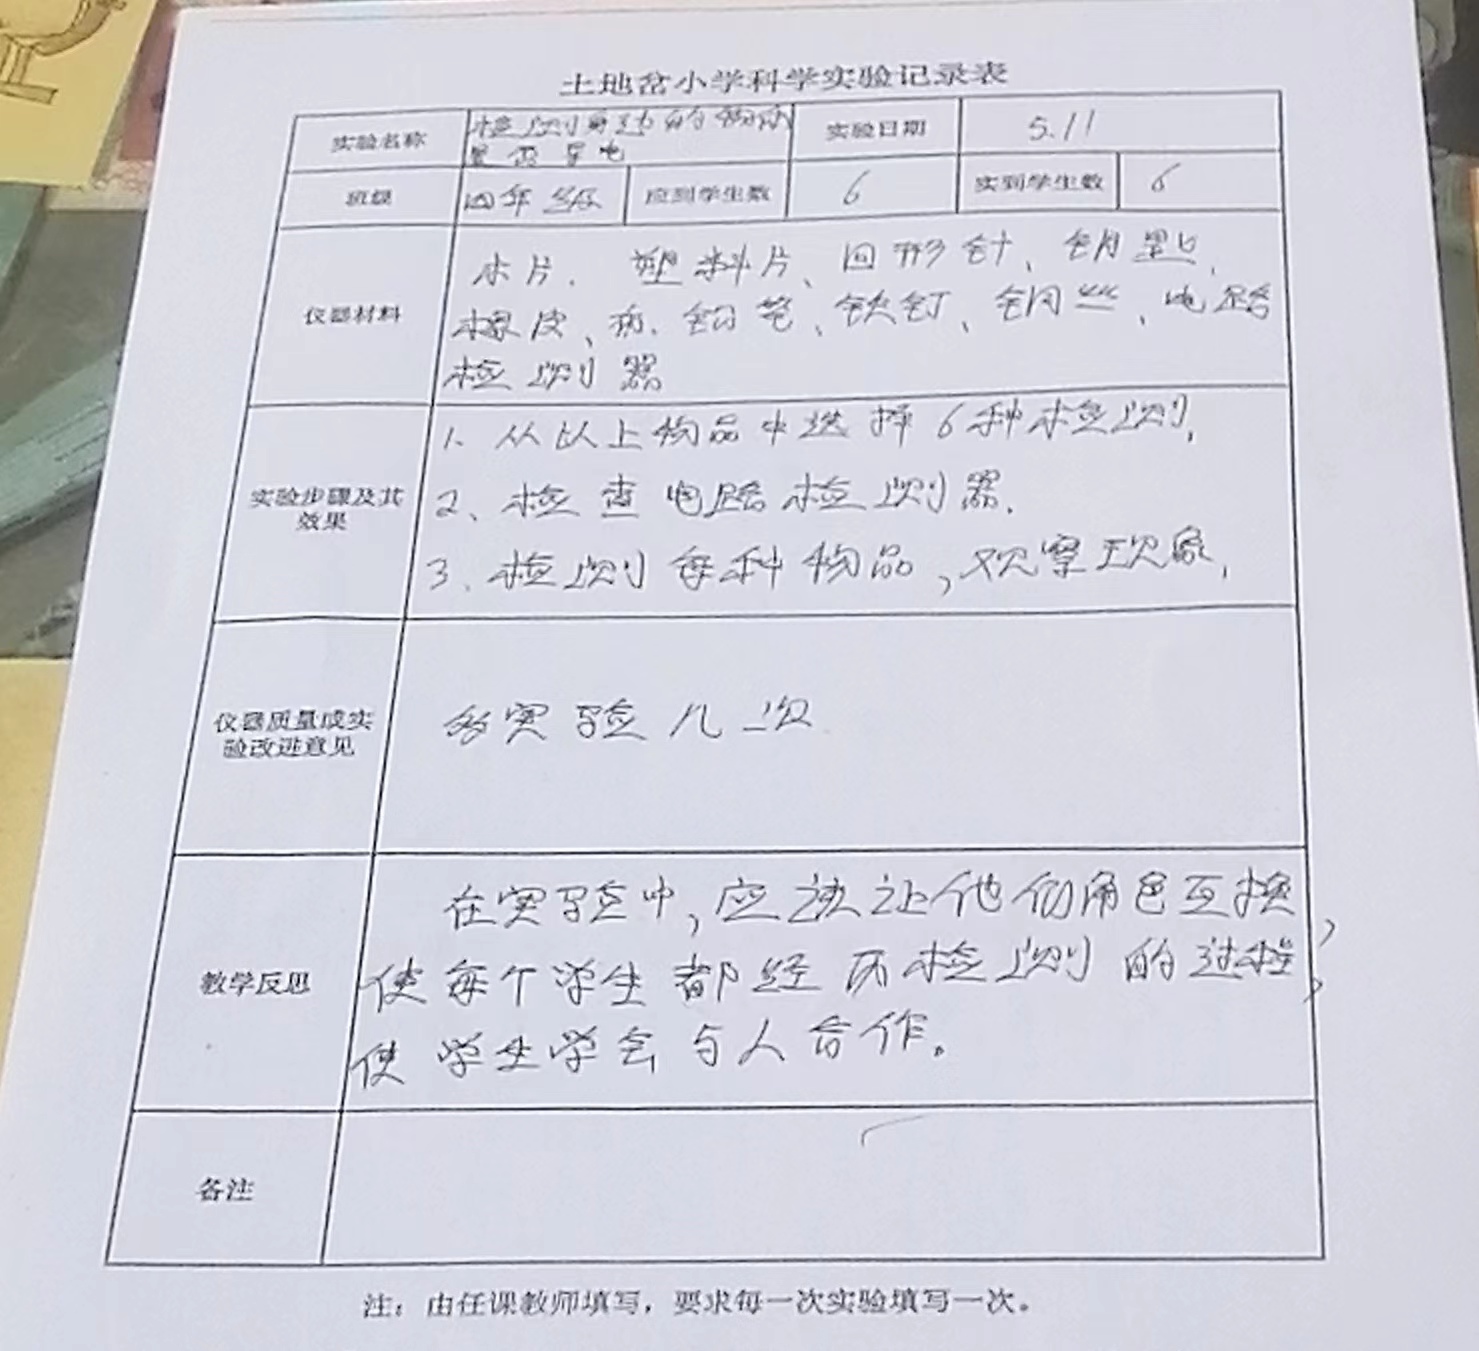 土地岔小学科学实验记录表
实验名称 检测身边的物体是否导电 实验日期 5.11
班级 四年级 应到学生数 6 实到学生数 6
仪器材料
木片、塑料片、回形针、钥匙、
橡皮、 铅笔、铁钉、铜丝、电路
检测器
实验步骤及其
效果
1、从以上物品中选择6种检测,
2、检查电路检测器.
3、检测每种物品,观察现象,
仪器质量或实
验改进意见
多实验几次
教学反思
在实验中,应该让他们角色互换,
使每个学生都经历检测的过程,
使学生学会与人合作。
备注
注:由任课教师填写,要求每一次实验填写一次。